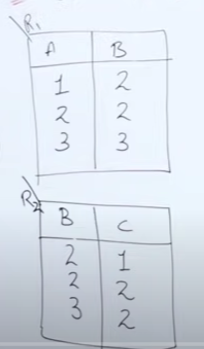 R1
A B
1 2
2 2
3 3
R2
B C
2 1
2 2
3 2